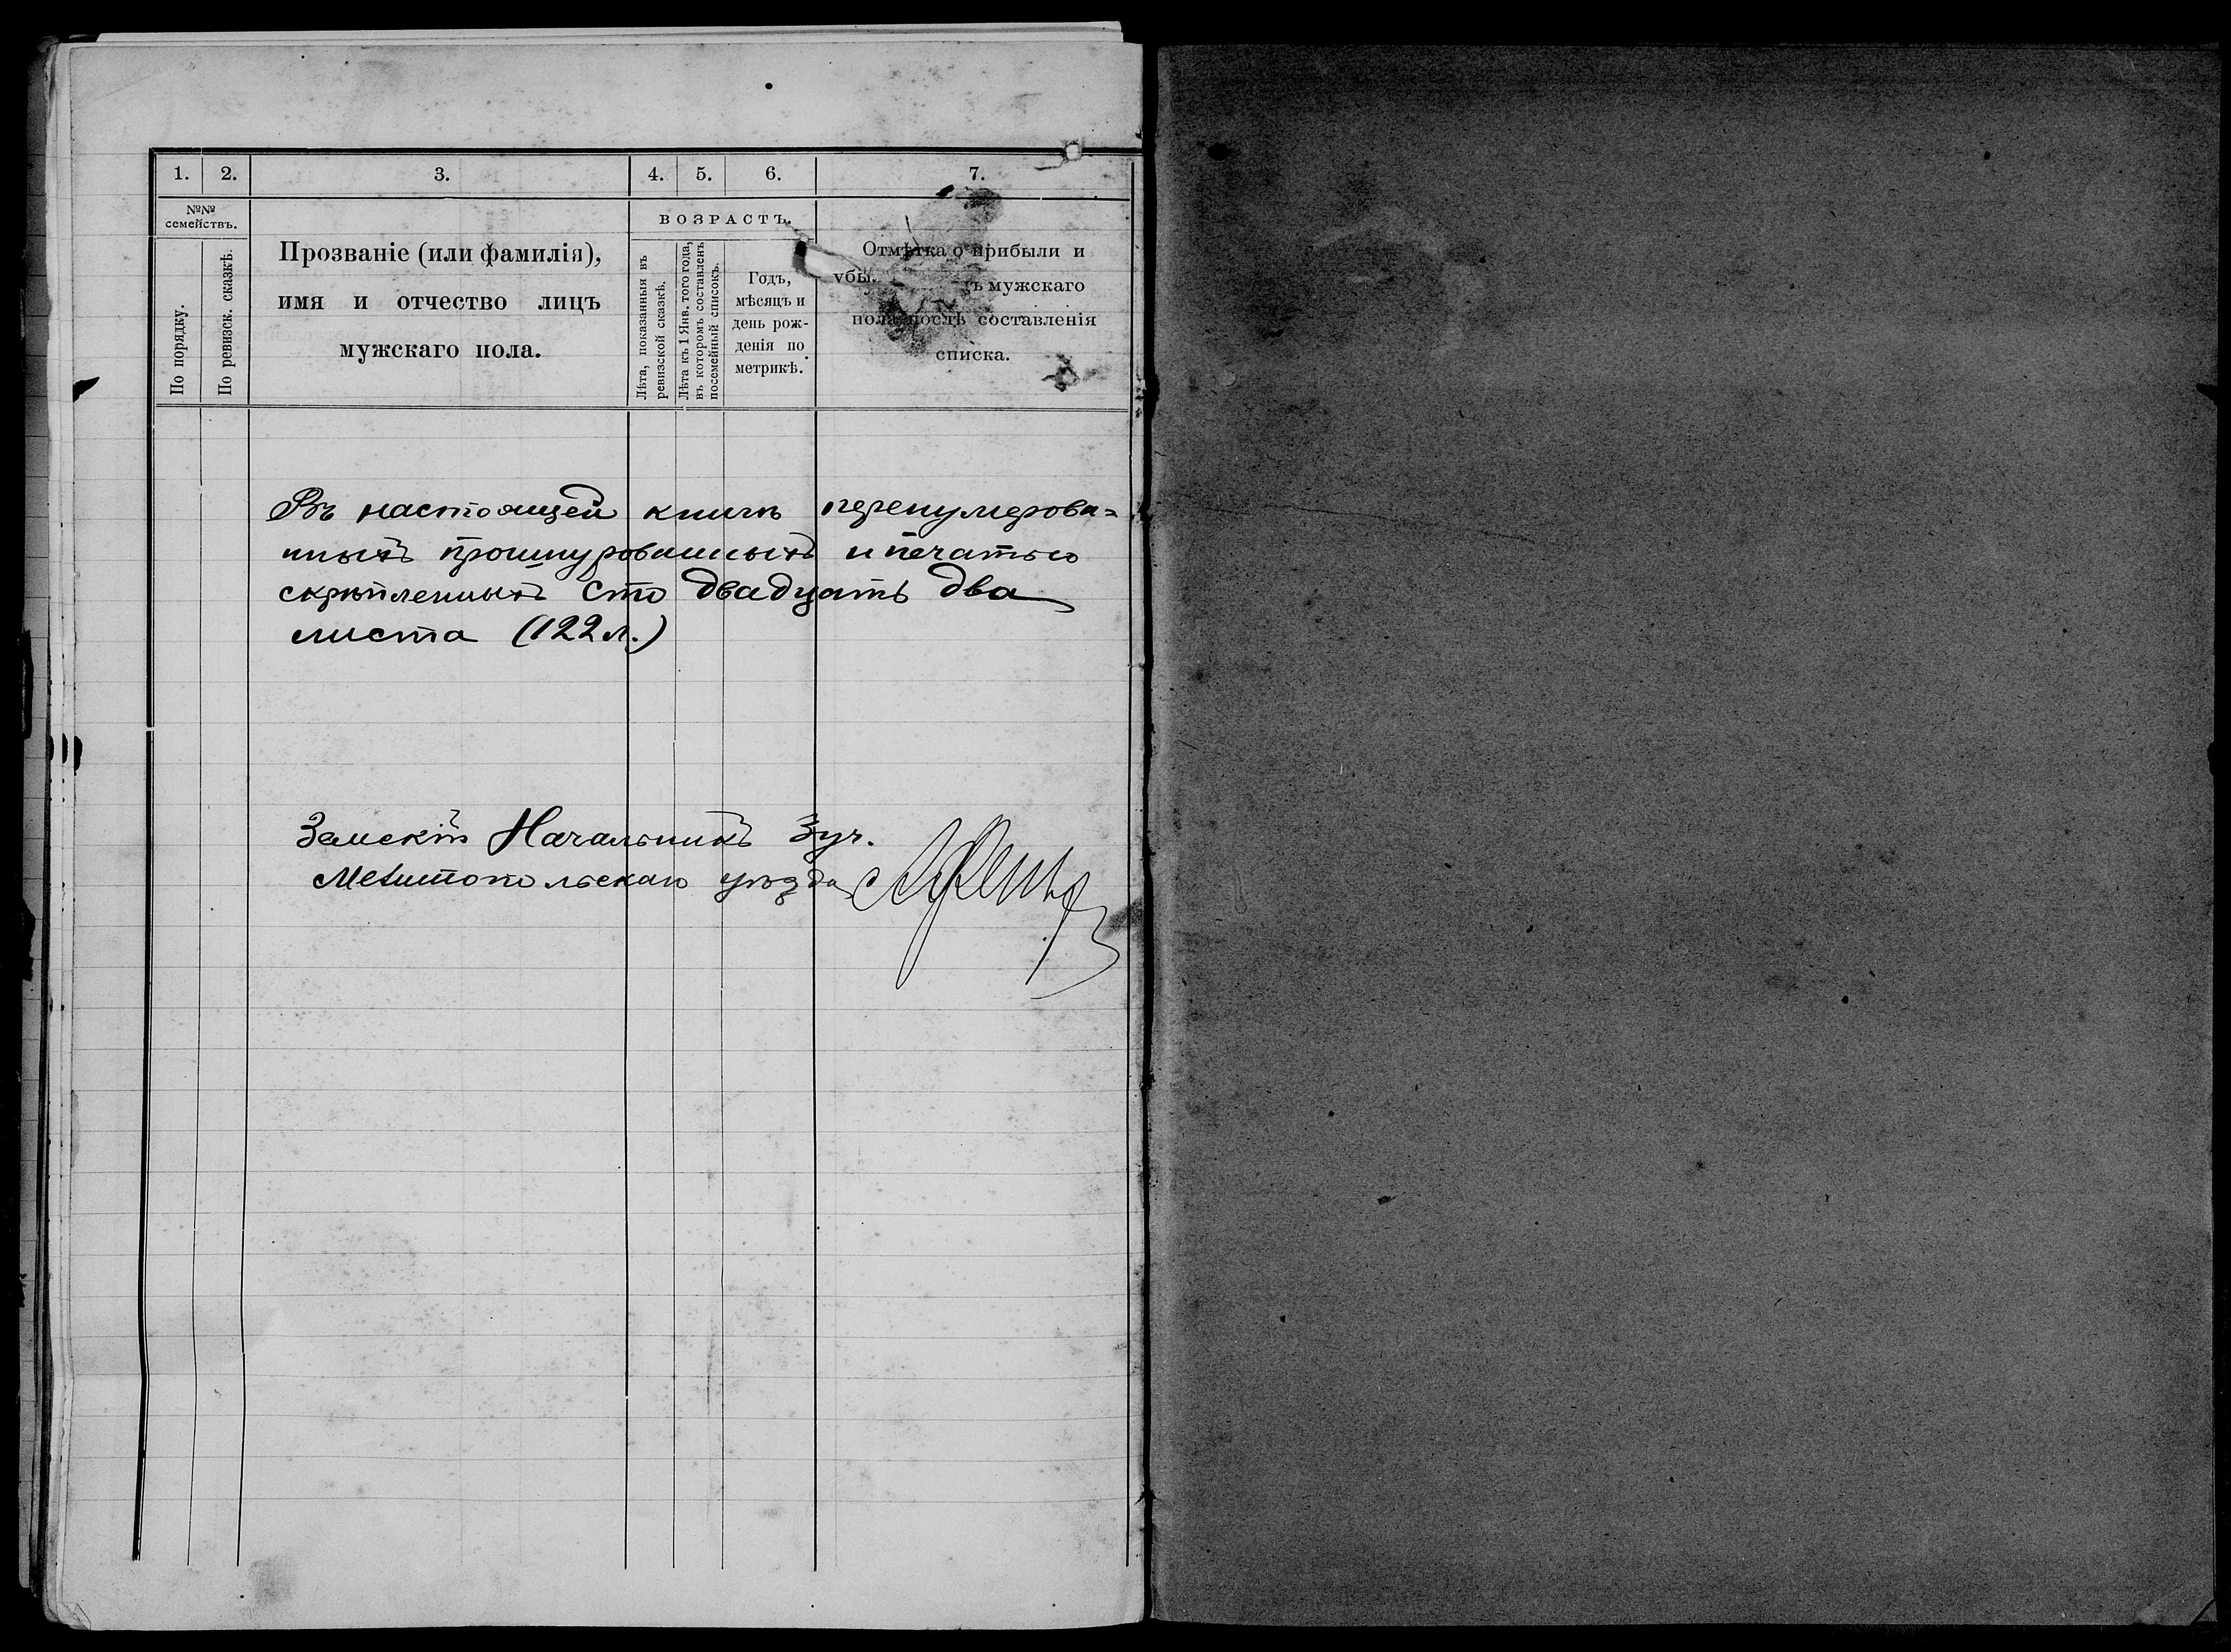 1. 2. 3. 4. 5. 6. 7.
№№ семействъ.
По порядку.
По ревизск. сказкѣ.
Прозваніе (или фамилія),
имя и отчество лицъ
мужскаго пола.
ВОЗРАСТЪ.
Лѣта, показанныя въ
ревизской сказкѣ.
Лѣта къ 1 Янв. того года,
въ которомъ составленъ
посемейный списокъ.
Годъ,
мѣсяцъ и
день рож-
денія по
метрикѣ.
Отмѣтка о прибыли и
убы. ъ мужскаго
пола послѣ составленія
списка.
Въ настоящей книгѣ перенумерова=
нныхъ прошнурованныхъ и печатью
скрѣпленныхъ сто двадцать два
листа (122 л.)
Земскій Начальникъ 3 уч.
Мелитопольскаго уѣзда